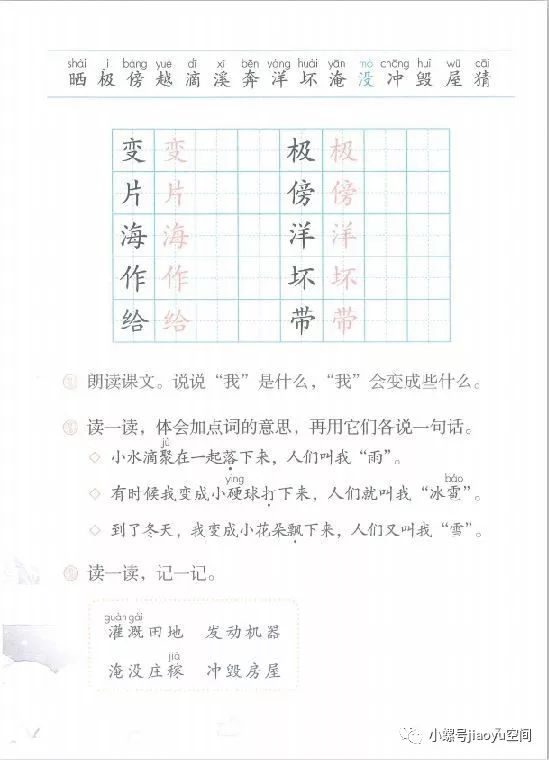 shài jí bàng yuè dī xī bēn yáng huài yān mò chōng huǐ wū cāi
晒 极 傍 越 滴 溪 奔 洋 坏 淹 没 冲 毁 屋 猜
变 变 极 极
片 片 傍 傍
海 海 洋 洋
作 作 坏 坏
给 给 带 带
朗读课文。说说“我”是什么，“我”会变成些什么。
读一读，体会加点词的意思，再用它们各说一句话。
jù
◇ 小水滴聚在一起落下来，人们叫我“雨”。
yìng báo
◇ 有时候我变成小硬球打下来，人们就叫我“冰雹”。
◇ 到了冬天，我变成小花朵飘下来，人们又叫我“雪”。
读一读，记一记。
guàn gài
灌溉田地 发动机器
jià
淹没庄稼 冲毁房屋
小螺号jiaoyu空间